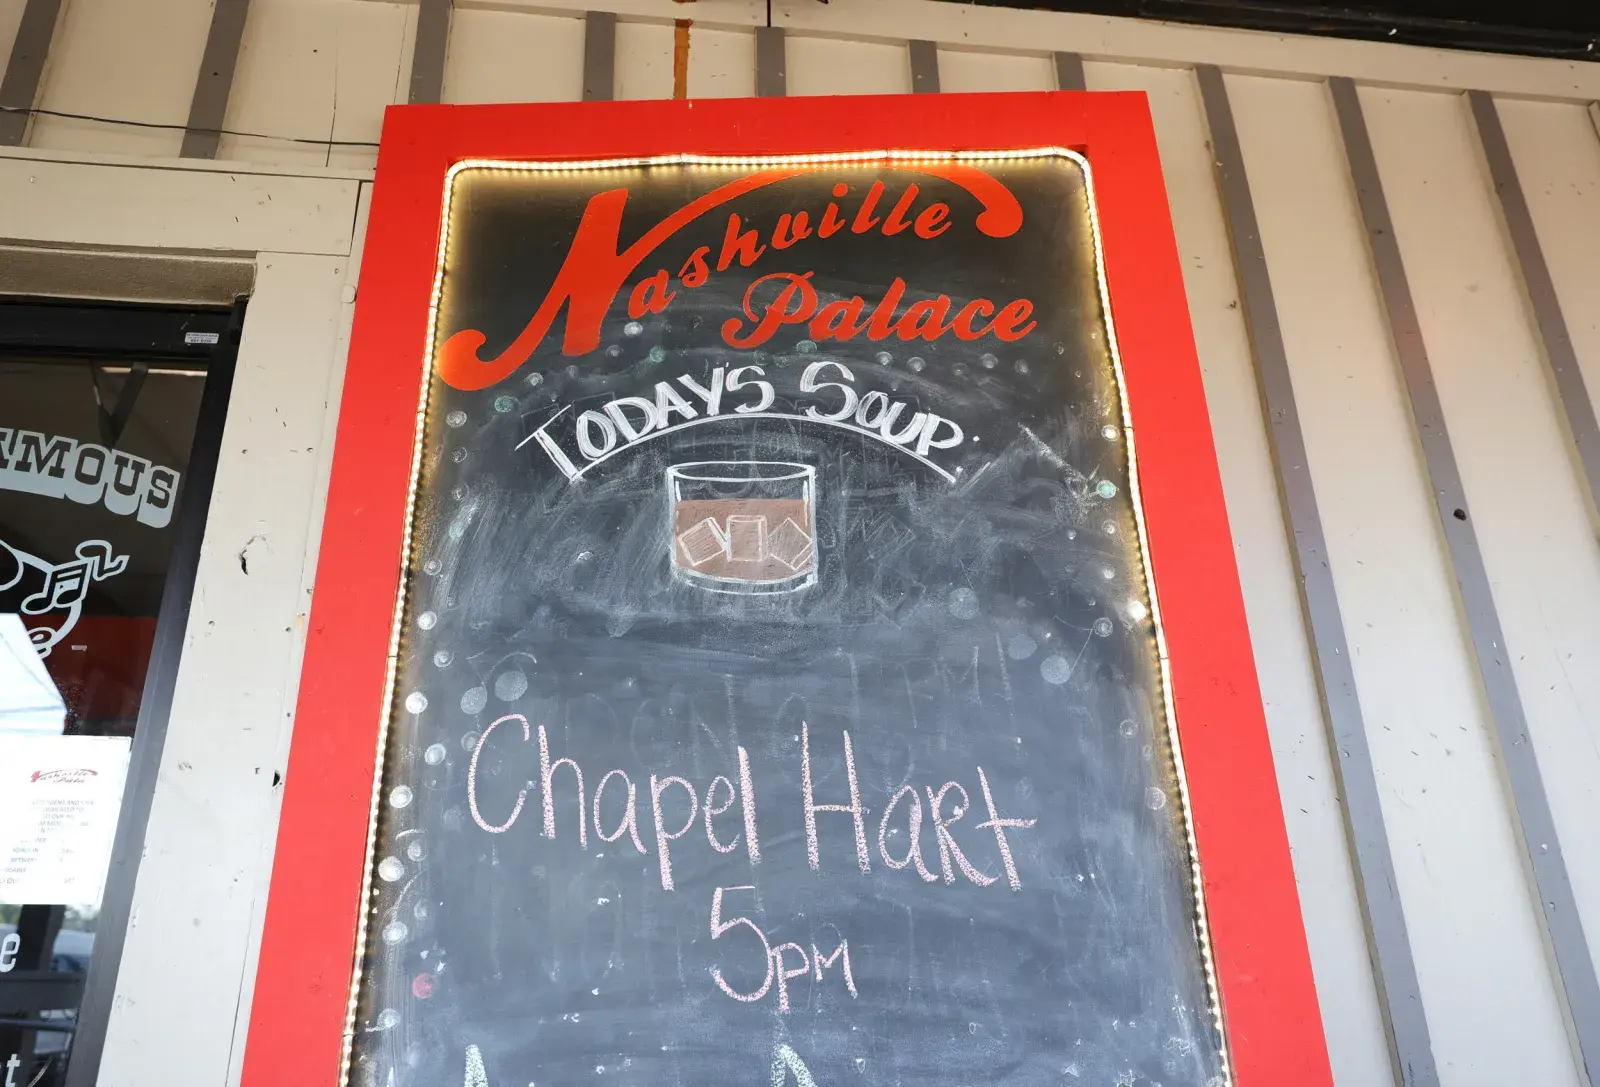 Nashville
Palace
TODAY'S SOUP
Chapel Hart
5pm
AMOUS
Nashville
Palace